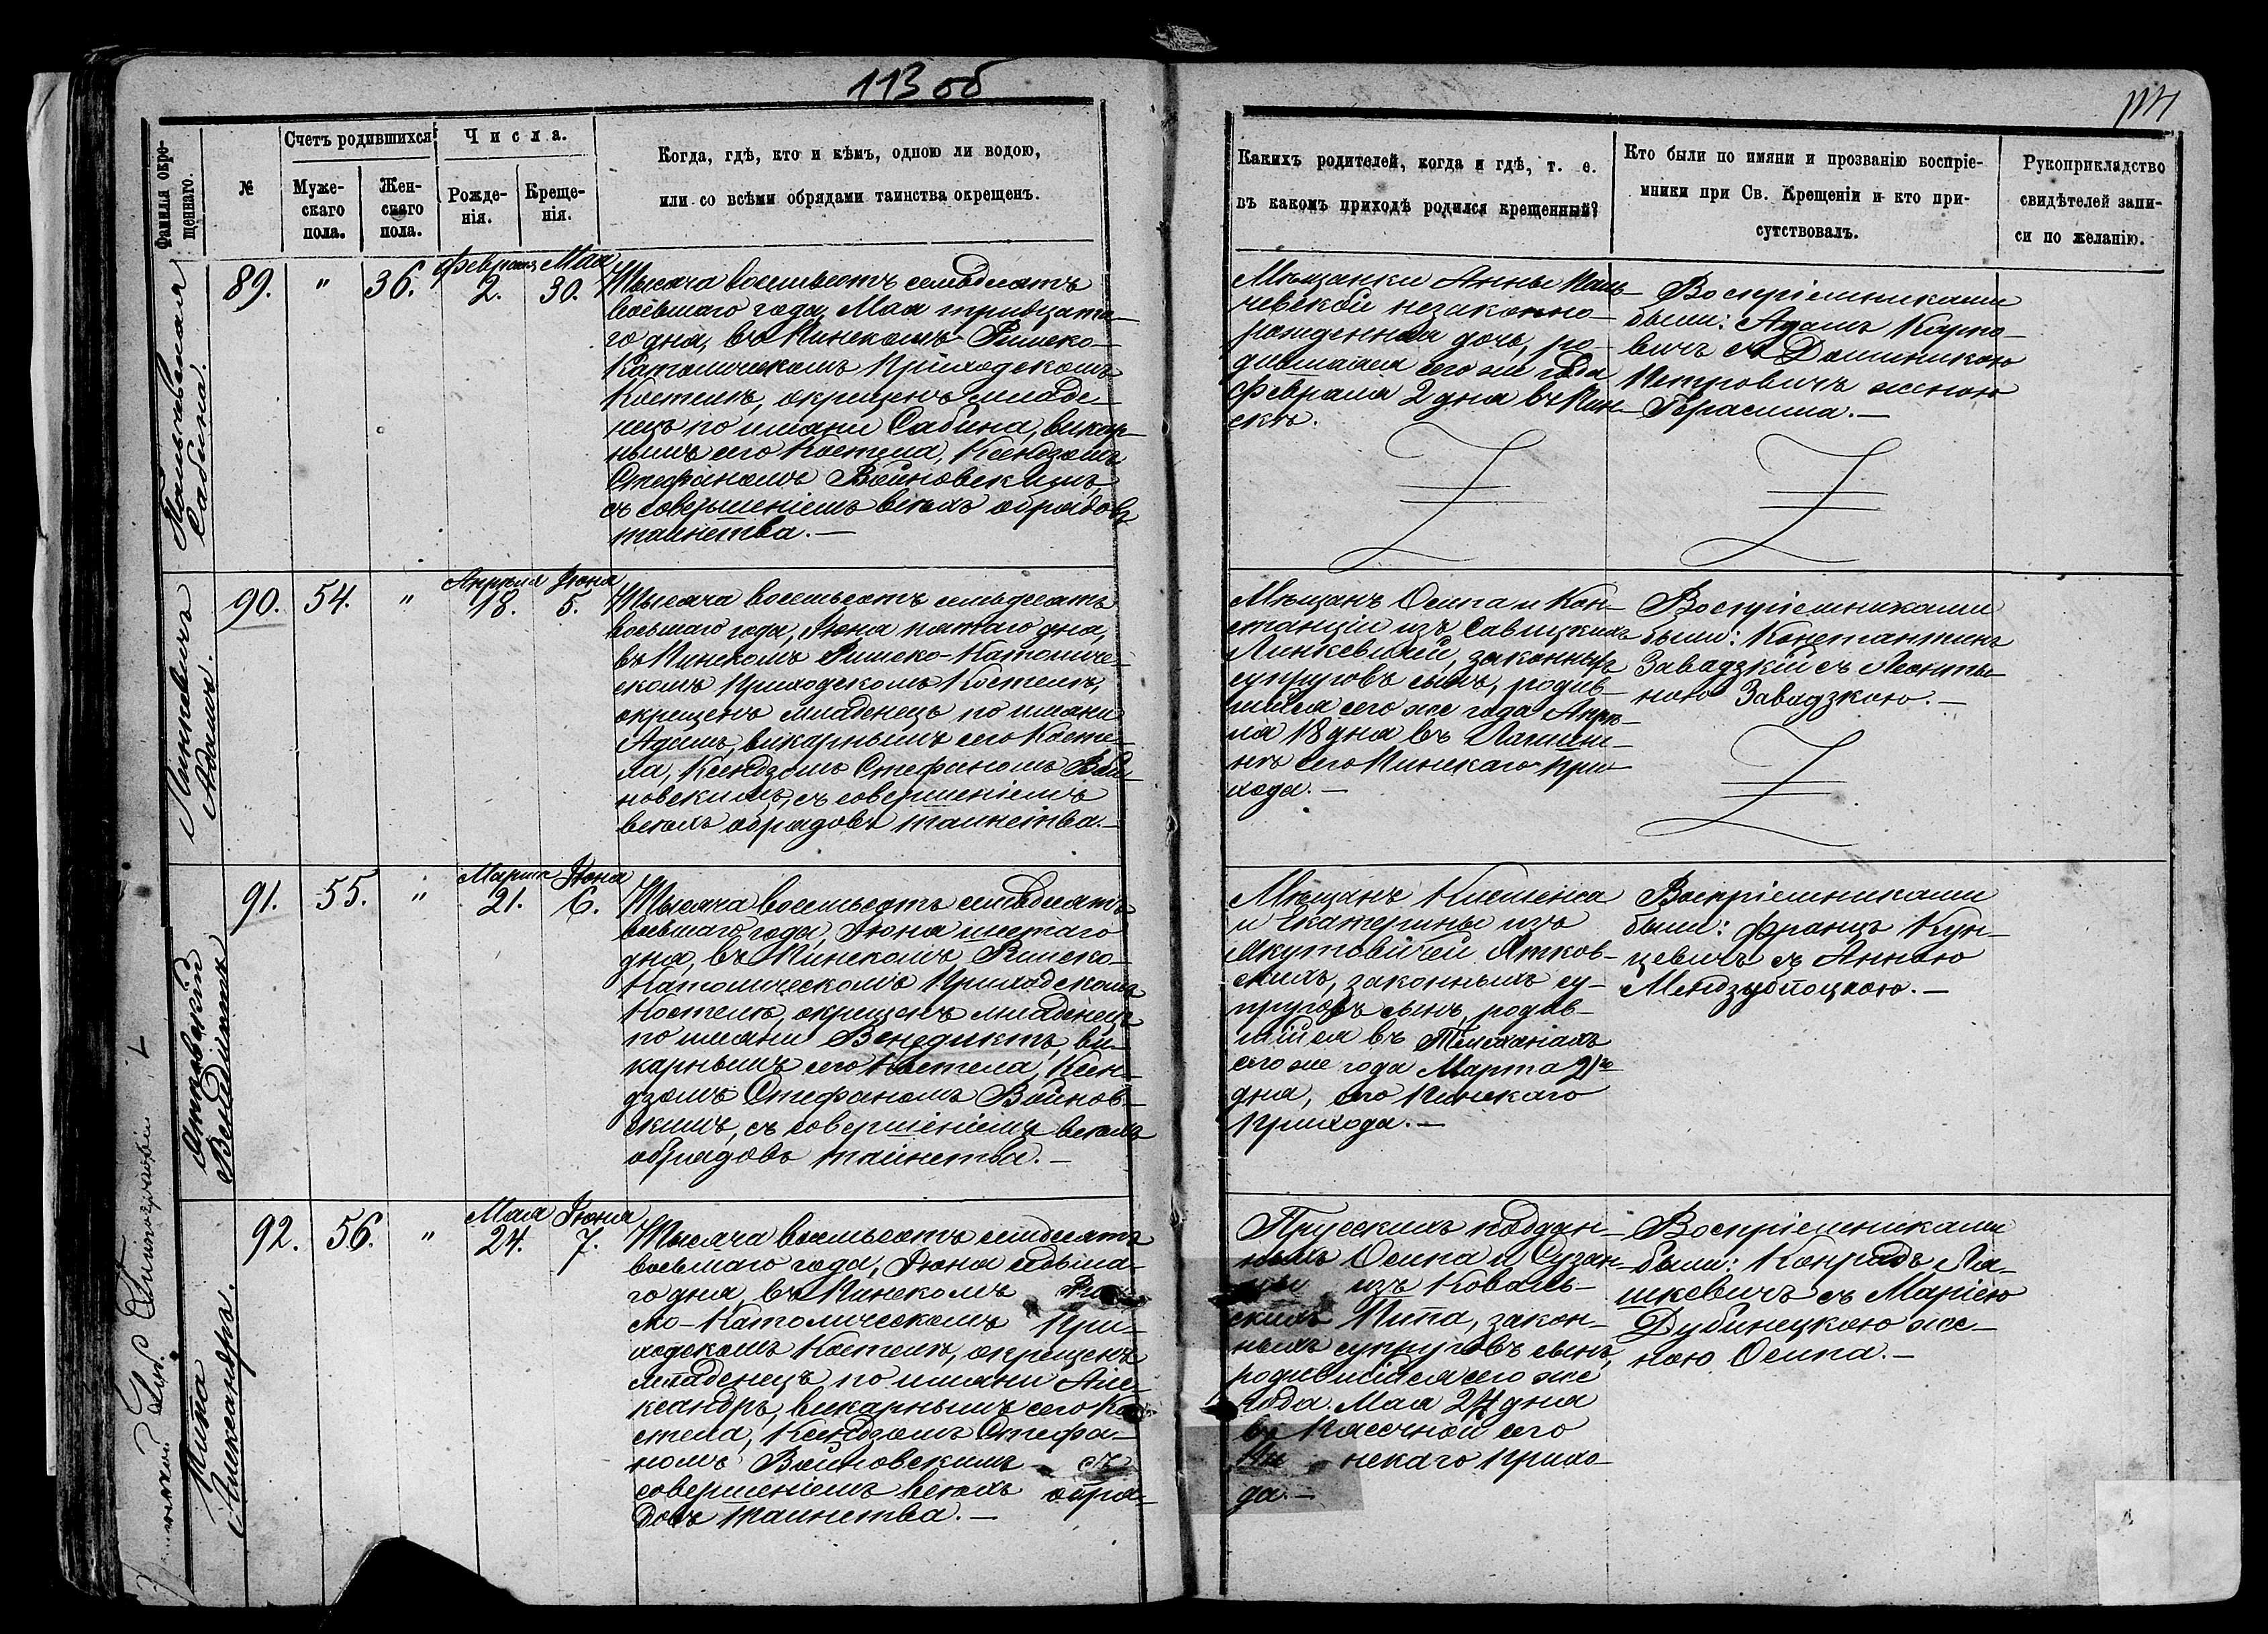 113 об
114
Фамилія окре-
щеннаго.
№
Счетъ родившихся
Муже-
скаго
пола.
Жен-
скаго
пола.
Числа.
Рожде-
нія.
Креще-
нія.
Когда, гдѣ, кто и кѣмъ, одною ли водою,
или со всѣми обрядами таинства окрещенъ.
Какихъ родителей, когда и гдѣ, т. е.
въ какомъ приходѣ родился крещенный?
Кто были по имяни и прозванію воспріе-
мники при Св. Крещеніи и кто при-
сутствовалъ.
Рукоприкладство
свидѣтелей запи-
си по желанію.
Пальчевская
Сабина.
89. " 36. Февраля 2. Мая 30.
Тысяча восемьсотъ семьдесятъ
восьмаго года, Мая тридцата-
го дня, въ Пинскомъ Римско-
Католическомъ Приходскомъ
Костелѣ, окрещенъ младе-
нецъ по имяни Сабина, викар-
нымъ сего Костела, Ксендзомъ
Стефаномъ Войновскимъ,
съ совершеніемъ всѣхъ обрядовъ
таинства.—
Мѣщанки Анны Паль-
чевской незаконно-
рожденная дочь, ро-
дившаяся сего же года
Февраля 2 дня въ Пин-
скѣ.
Воспріемниками
были: Адамъ Карпо-
вичъ съ Доминикою
Петровичъ женою
Герасима.—
Линкевичъ
Адамъ.
90. 54. " Апрѣля 18. Іюня 5.
Тысяча восемьсотъ семьдесятъ
восьмаго года, Іюня пятаго дня,
въ Пинскомъ Римско-Католиче-
скомъ Приходскомъ Костелѣ,
окрещенъ младенецъ по имяни
Адамъ, викарнымъ сего Косте-
ла, Ксендзомъ Стефаномъ Вой-
новскимъ, съ совершеніемъ
всѣхъ обрядовъ таинства.—
Мѣщанъ Осипа и Кон-
станціи изъ Савицкихъ
Линкевичей, законныхъ
супруговъ сынъ, родив-
шійся сего же года Апрѣ-
ля 18 дня въ
сего Пинскаго При-
хода.—
Воспріемниками
были: Константинъ
Завадзкій съ Леонты-
ною Завадзкою.—
Ятковскій
Венедиктъ
91. 55. " Марта 21. Іюня 6.
Тысяча восемьсотъ семьдесятъ
восьмаго года, Іюня шестаго
дня, въ Пинскомъ Римско-
Католическомъ Приходскомъ
Костелѣ, окрещенъ младенецъ
по имяни Венедиктъ, ви-
карнымъ сего Костела, Ксен-
дзомъ Стефаномъ Войнов-
скимъ, съ совершеніемъ всѣхъ
обрядовъ таинства.—
Мѣщанъ
и Екатерины изъ
Якутовичей Ятков-
скихъ, законныхъ су-
пруговъ сынъ, родив-
шійся въ Телеханахъ
сего же года Марта 21го
дня, сего Пинскаго
Прихода.—
Воспріемниками
были: Францъ Кун-
цевичъ съ Анною
Пита
Александръ.
92. 56. " Мая 24. Іюня 7.
Тысяча восемьсотъ семьдесятъ
восьмаго года, Іюня седьма-
го дня, въ Пинскомъ Рим-
ско-Католическомъ При-
ходскомъ Костелѣ, окрещенъ
младенецъ по имяни Але-
ксандръ, викарнымъ сего Ко-
стела, Ксендзомъ Стефа-
номъ Войновскимъ съ
совершеніемъ всѣхъ обря-
довъ таинства.—
Прусскихъ поддан-
ныхъ Осипа и Сузан-
ны изъ Коваль-
скихъ Пита, закон-
ныхъ супруговъ сынъ,
родившійся сего же
года Мая 24 дня
въ Пасѣчной сего
Пинскаго Прихо-
да.—
Воспріемниками
были: Конрадъ Ла-
шкевичъ съ Маріею
Дубинецкою же-
ною Осипа.—